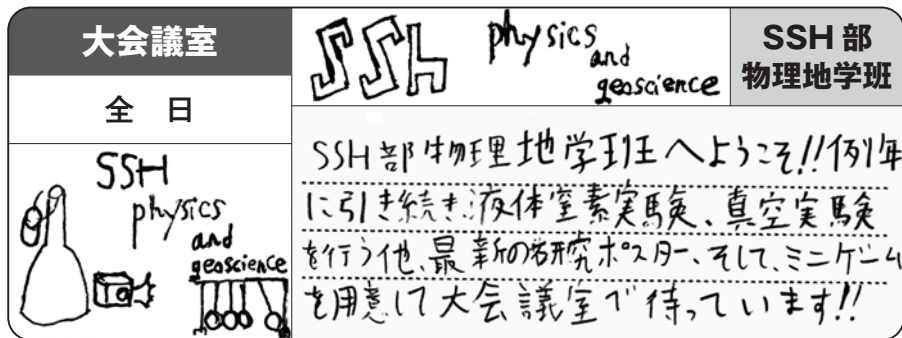 大会議室
全 日
SSH
physics
and
geoscience
SSH
physics
and
geoscience
SSH 部
物理地学班
SSH部物理地学班へようこそ!!例年
に引き続き、液体窒素実験、真空実験
を行う他、最新の研究ポスター、そして、ミニゲーム
を用意して大会議室で待っています!!